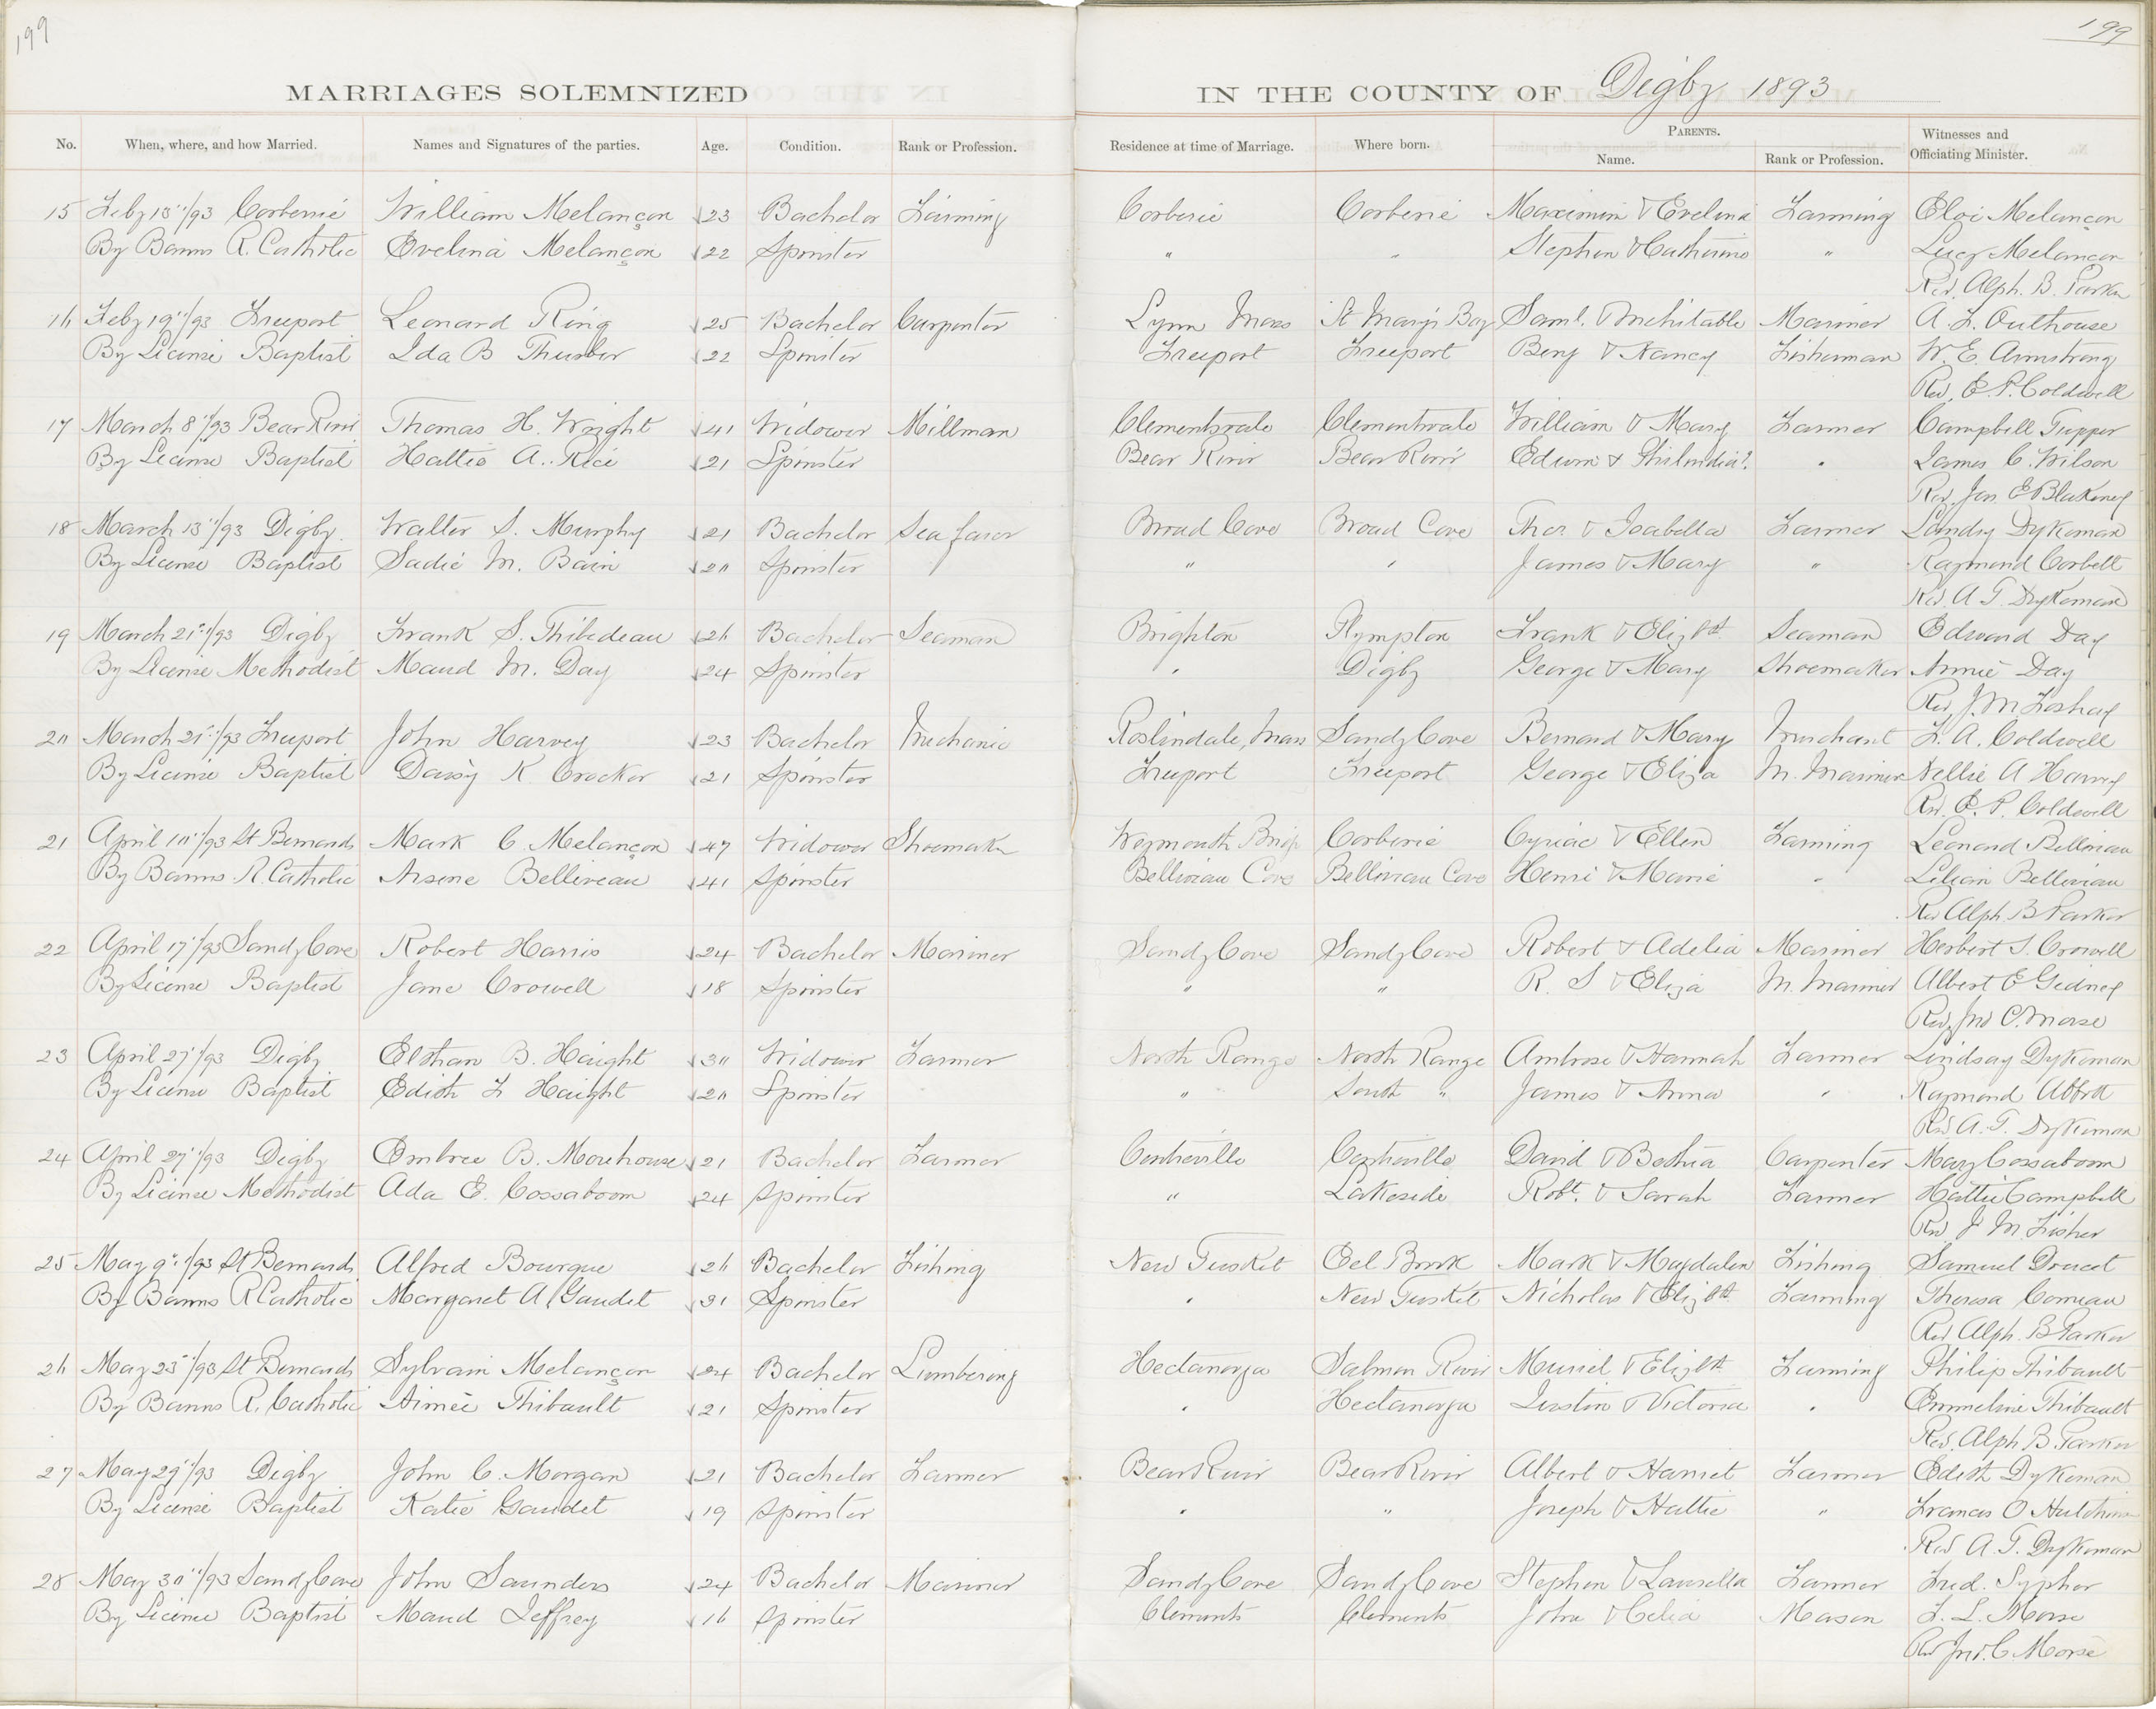 199
199
MARRIAGES SOLEMNIZED
IN THE COUNTY OF Digby 1893
No. When, where, and how Married. Names and Signatures of the parties. Age. Condition. Rank or Profession. Residence at time of Marriage. Where born. PARENTS. Name. Rank or Profession. Witnesses and Officiating Minister.
15 Feby 13"/93 Corberrie William Melançon 23 Bachelor Farming Corberie Corberie Maximin & Evelina Farming Eloi Melançon
By Banns R. Catholic Evelina Melançon 22 Spinster " " Stephen & Catherine " Lucy Melançon
Rev. Alph. B. Parker
16 Feby 19"/93 Freeport Leonard Ring 25 Bachelor Carpenter Lynn Mass St Mary's Bay Saml. & Mehitable Mariner A. F. Outhouse
By License Baptist Ida B Thurber 22 Spinster Freeport Freeport Benj & Nancy Fisherman W. E. Armstrong
Rev. E. P. Coldwell
17 March 8"/93 Bear River Thomas H. Wright 41 Widower Millman Clementsvale Clementvale William & Mary Farmer Campbell Tupper
By License Baptist Hattie A. Rice 21 Spinster Bear River Bear River Edwin & " James C. Wilson
Rev. Jas. E Blakeney
18 March 13"/93 Digby. Walter S. Murphy 21 Bachelor Sea farer Broad Cove Broad Cove Thos. & Isabella Farmer Landry Dykeman
By License Baptist Sadie M. Bain 20 Spinster " " James & Mary " Raymond Corbett
Rev. A T. Dykeman
19 March 21st/93 Digby Frank S. Thibedeau 26 Bachelor Seaman Brighton Plympton Frank & Elizbth Seaman Edward Day
By License Methodist Maud M. Day 24 Spinster " Digby George & Mary Shoemaker Annie Day
Rev. J. M
20 March 21st/93 Freeport John Harvey 23 Bachelor Mechanic Roslindale, Mass Sandy Cove Bernard & Mary Merchant F. A. Coldwell
By License Baptist Daisy K. Crocker 21 Spinster Freeport Freeport George & Eliza M. Mariner Nellie A Harvey
Rev. E. P. Coldwell
21 April 10"/93 St Bernards Mark C. Melançon 47 Widower Shoemaker Weymouth Bridge Corberie Cyriac & Ellen Farming Leonard Belliveau
By Banns R. Catholic Arsene Belliveau 41 Spinster Belliveau Cove Belliveau Cove Henri & Marie " Lilian Belliveau
Rev Alph. B Parker
22 April 17"/93 Sandy Cove Robert Harris 24 Bachelor Mariner Sandy Cove Sandy Cove Robert & Adelia Mariner Herbert S. Crowell
By License Baptist Jane Crowell 18 Spinster " " R. S & Eliza M. Mariner Albert E Gidney
Rev. Jno C. Morse
23 April 27"/93 Digby Elethan B. Haight 30 Widower Farmer North Range North Range Ambrose & Hannah Farmer Lindsay Dykeman
By License Baptist Edith F Haight 20 Spinster " South " James & Anna " Raymond
Rev A. T. Dykeman
24 April 27"/93 Digby Embree B. Morehouse 21 Bachelor Farmer Centreville Centreville David & Bethia Carpenter Mary Cossaboom
By License Methodist Ada E. Cossaboom 24 Spinster " Lakeside Robt. & Sarah Farmer Hattie Campbell
Rev J M Fisher
25 May 9"/93 St Bernards Alfred Bourque 26 Bachelor Fishing New Tusket Eel Brook Mark & Magdalen Fishing Samuel Doucet
By Banns R Catholic Margaret A. Gaudet 31 Spinster " New Tusket Nicholas & Elizbth Farming Theresa Comeau
Rev Alph. B Parker
26 May 23"/93 St Bernards Sylvain Melançon 24 Bachelor Lumbering Hectanooga Salmon River Muriel & Elizbth Farming Philip Thibault
By Banns R. Catholic Aimée Thibault 21 Spinster " Hectanooga Justin & Victoria " Emmeline Thibault
Rev. Alph B. Parker
27 May 29"/93 Digby John C. Morgan 21 Bachelor Farmer Bear River Bear River Albert & Harriet Farmer Edith Dykeman
By License Baptist Katie Gaudet 19 Spinster " " Joseph & Hattie " Frances O Hutchinson
Rev A. T. Dykeman
28 May 30"/93 Sandy Cove John Saunders 24 Bachelor Mariner Sandy Cove Sandy Cove Stephen & Farmer Fred. Sypher
By License Baptist Maud Jeffrey 16 Spinster Clements Clements John & Celia Mason F. L. Morse
Rev Jno. C Morse